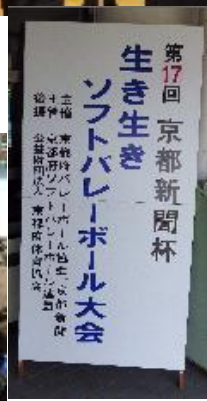 第17回 京都新聞杯
生き生き
ソフトバレーボール大会
主催 京都府バレーボール協会・京都新聞
主管 京都府ソフトバレーボール連盟
後援 公益財団法人 京都府体育協会